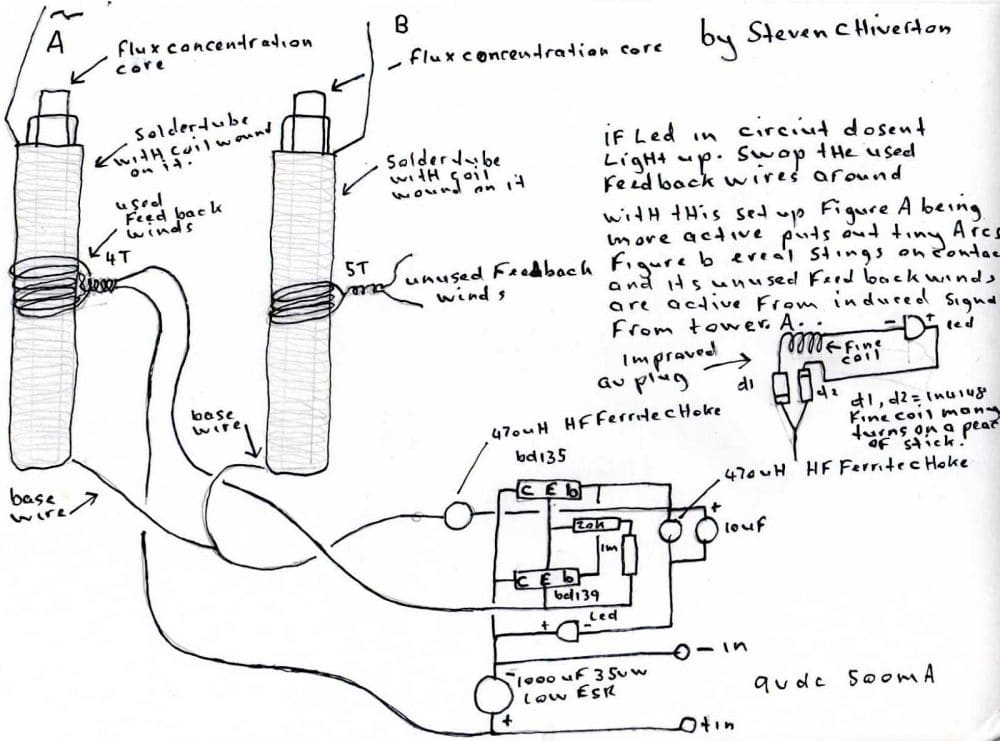 A
flux concentration
core
B
flux concentration core
by Steven CHiverton
Soldertube
with coil wound
on it.
used
Feed back
winds
4T
Soldertube
with coil
wound on it
5T
unused Feedback
winds
iF Led in circiut dosent
LigHt up. Swap tHe used
Feedback wires around
witH tHis set up Figure A being
more active puts out tiny Arcs
Figure b ereal Stings on contac
and its unused Feed back winds
are active From induced Signa
From tower. A..
improved
av plug
Fine
coil
- +
led
d1
d2
d1, d2 = 1n4148
Fine coil many
turns on a peac
of stick.
base
wire
base
wire
470uH HF Ferrite cHoke
bd135
470uH HF Ferrite cHoke
C E b
20k
1m
+
10uF
C E b
bd139
Led
+ -
- in
- 1000uF 35vw
Low ESR
+
+in
9vdc 500mA